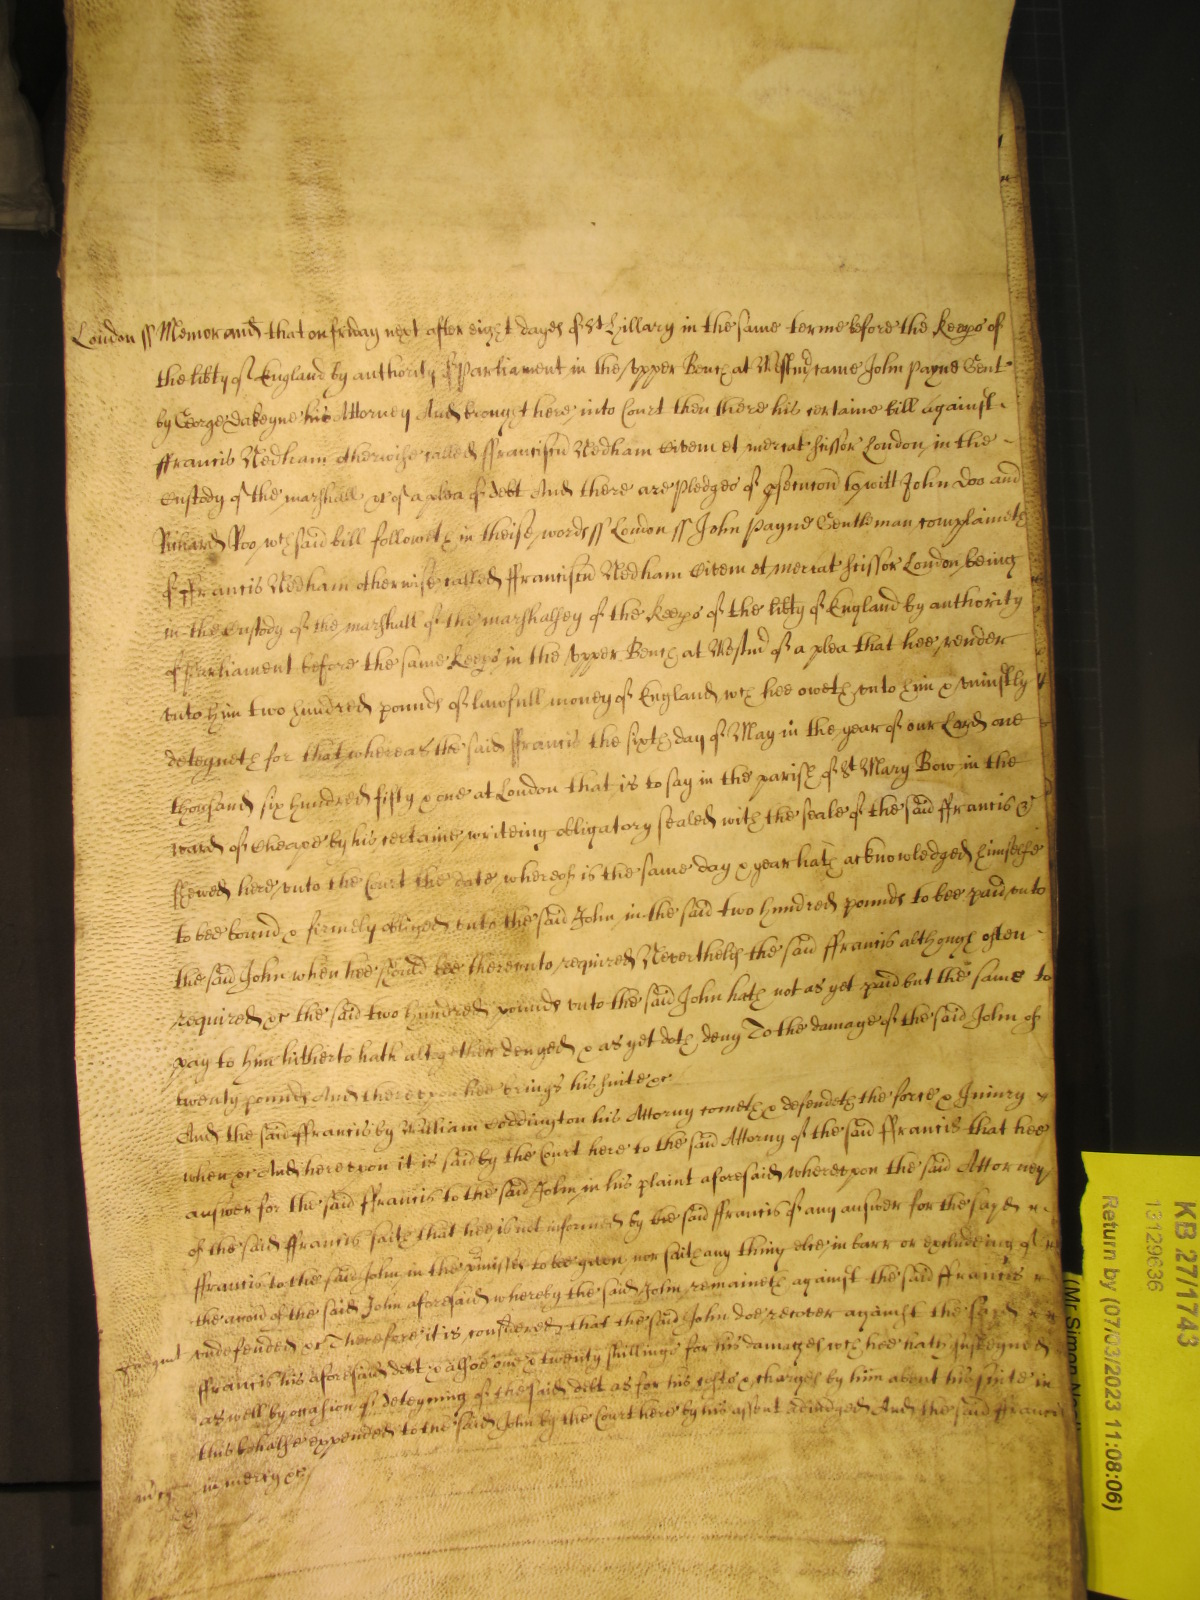 London ss Memorand that on friday next after eight dayes of St Hillary in the same terme before the Keeps of
the libty of England by authority of Parliament in the upper Bench at Westmr came John Payne Gent
by George Dakeyne his Attorney And brought here into Court then there his certaine bill against
ffrancis Nedham otherwise called ffranciscu Nedham Civem et mercat scissor London in the
Custody of the marshall &c of a plea of debt And there are Pledges of psecucon to witt John Doo and
Richard Roo wch said bill followeth in theise words ss London ss John Payne Gentleman complaineth
of ffrancis Nedham otherwise called ffranciscu Nedham Civem et mercat scissor London being
in the Custody of the marshall of the marshalsey of the Keeps of the libty of England by authority
of Parliament before the same Keeps in the upper Bench at Westmr of a plea that hee render
unto him two hundred pounds of lawfull money of England wch hee oweth unto him & uniustly
deteyneth for that whereas the said ffrancis the sixth day of May in the year of our Lord one
thousand six hundred fifty & one at London that is to say in the parish of St Mary Bow in the
ward of Cheape by his certaine writeing obligatory sealed with the seale of the said ffrancis &
shewed here unto the Court the date whereof is the same day & year hath acknowledged himselfe
to bee bound & firmely obliged unto the said John in the said two hundred pounds to bee paid unto
the said John when hee should bee thereunto required Neverthelesse the said ffrancis although often
required &c the said two hundred pounds unto the said John hath not as yet paid but the same to
pay to him hitherto hath altogether denyed & as yet doth deny To the damage of the said John of
twenty pounds And thereupon hee brings his suite &c
And the said ffrancis by William Coddington his Attorny cometh & defendeth the force & Iniury
when &c And hereupon it is said by the Court here to the said Attorny of the said ffrancis that hee
answer for the said ffrancis to the said John in his plaint aforesaid whereupon the said Attorney
of the said ffrancis saith that hee is not informed by the said ffrancis of any answer for the sayd
ffrancis to the said John in the pmisses to bee given nor saith any thing else in barr or excludeing of
the accon of the said John aforesaid whereby the said John remaineth against the said ffrancis
undefended &c Therefore it is considered that the said John doe recover against the sayd
Judgmt
ffrancis his aforesaid debt & alsoe one & twenty shillings for his damages wch hee hath susteyned
as well by occasion of deteyning of the said debt as for his costs & charges by him about his suite in
this behalfe expended to the said John by the Court here by his assent adiudged And the said ffrancis
in mercy &c
KB 27/1743
13129636
Return by (07/03/2023 11:08:06)